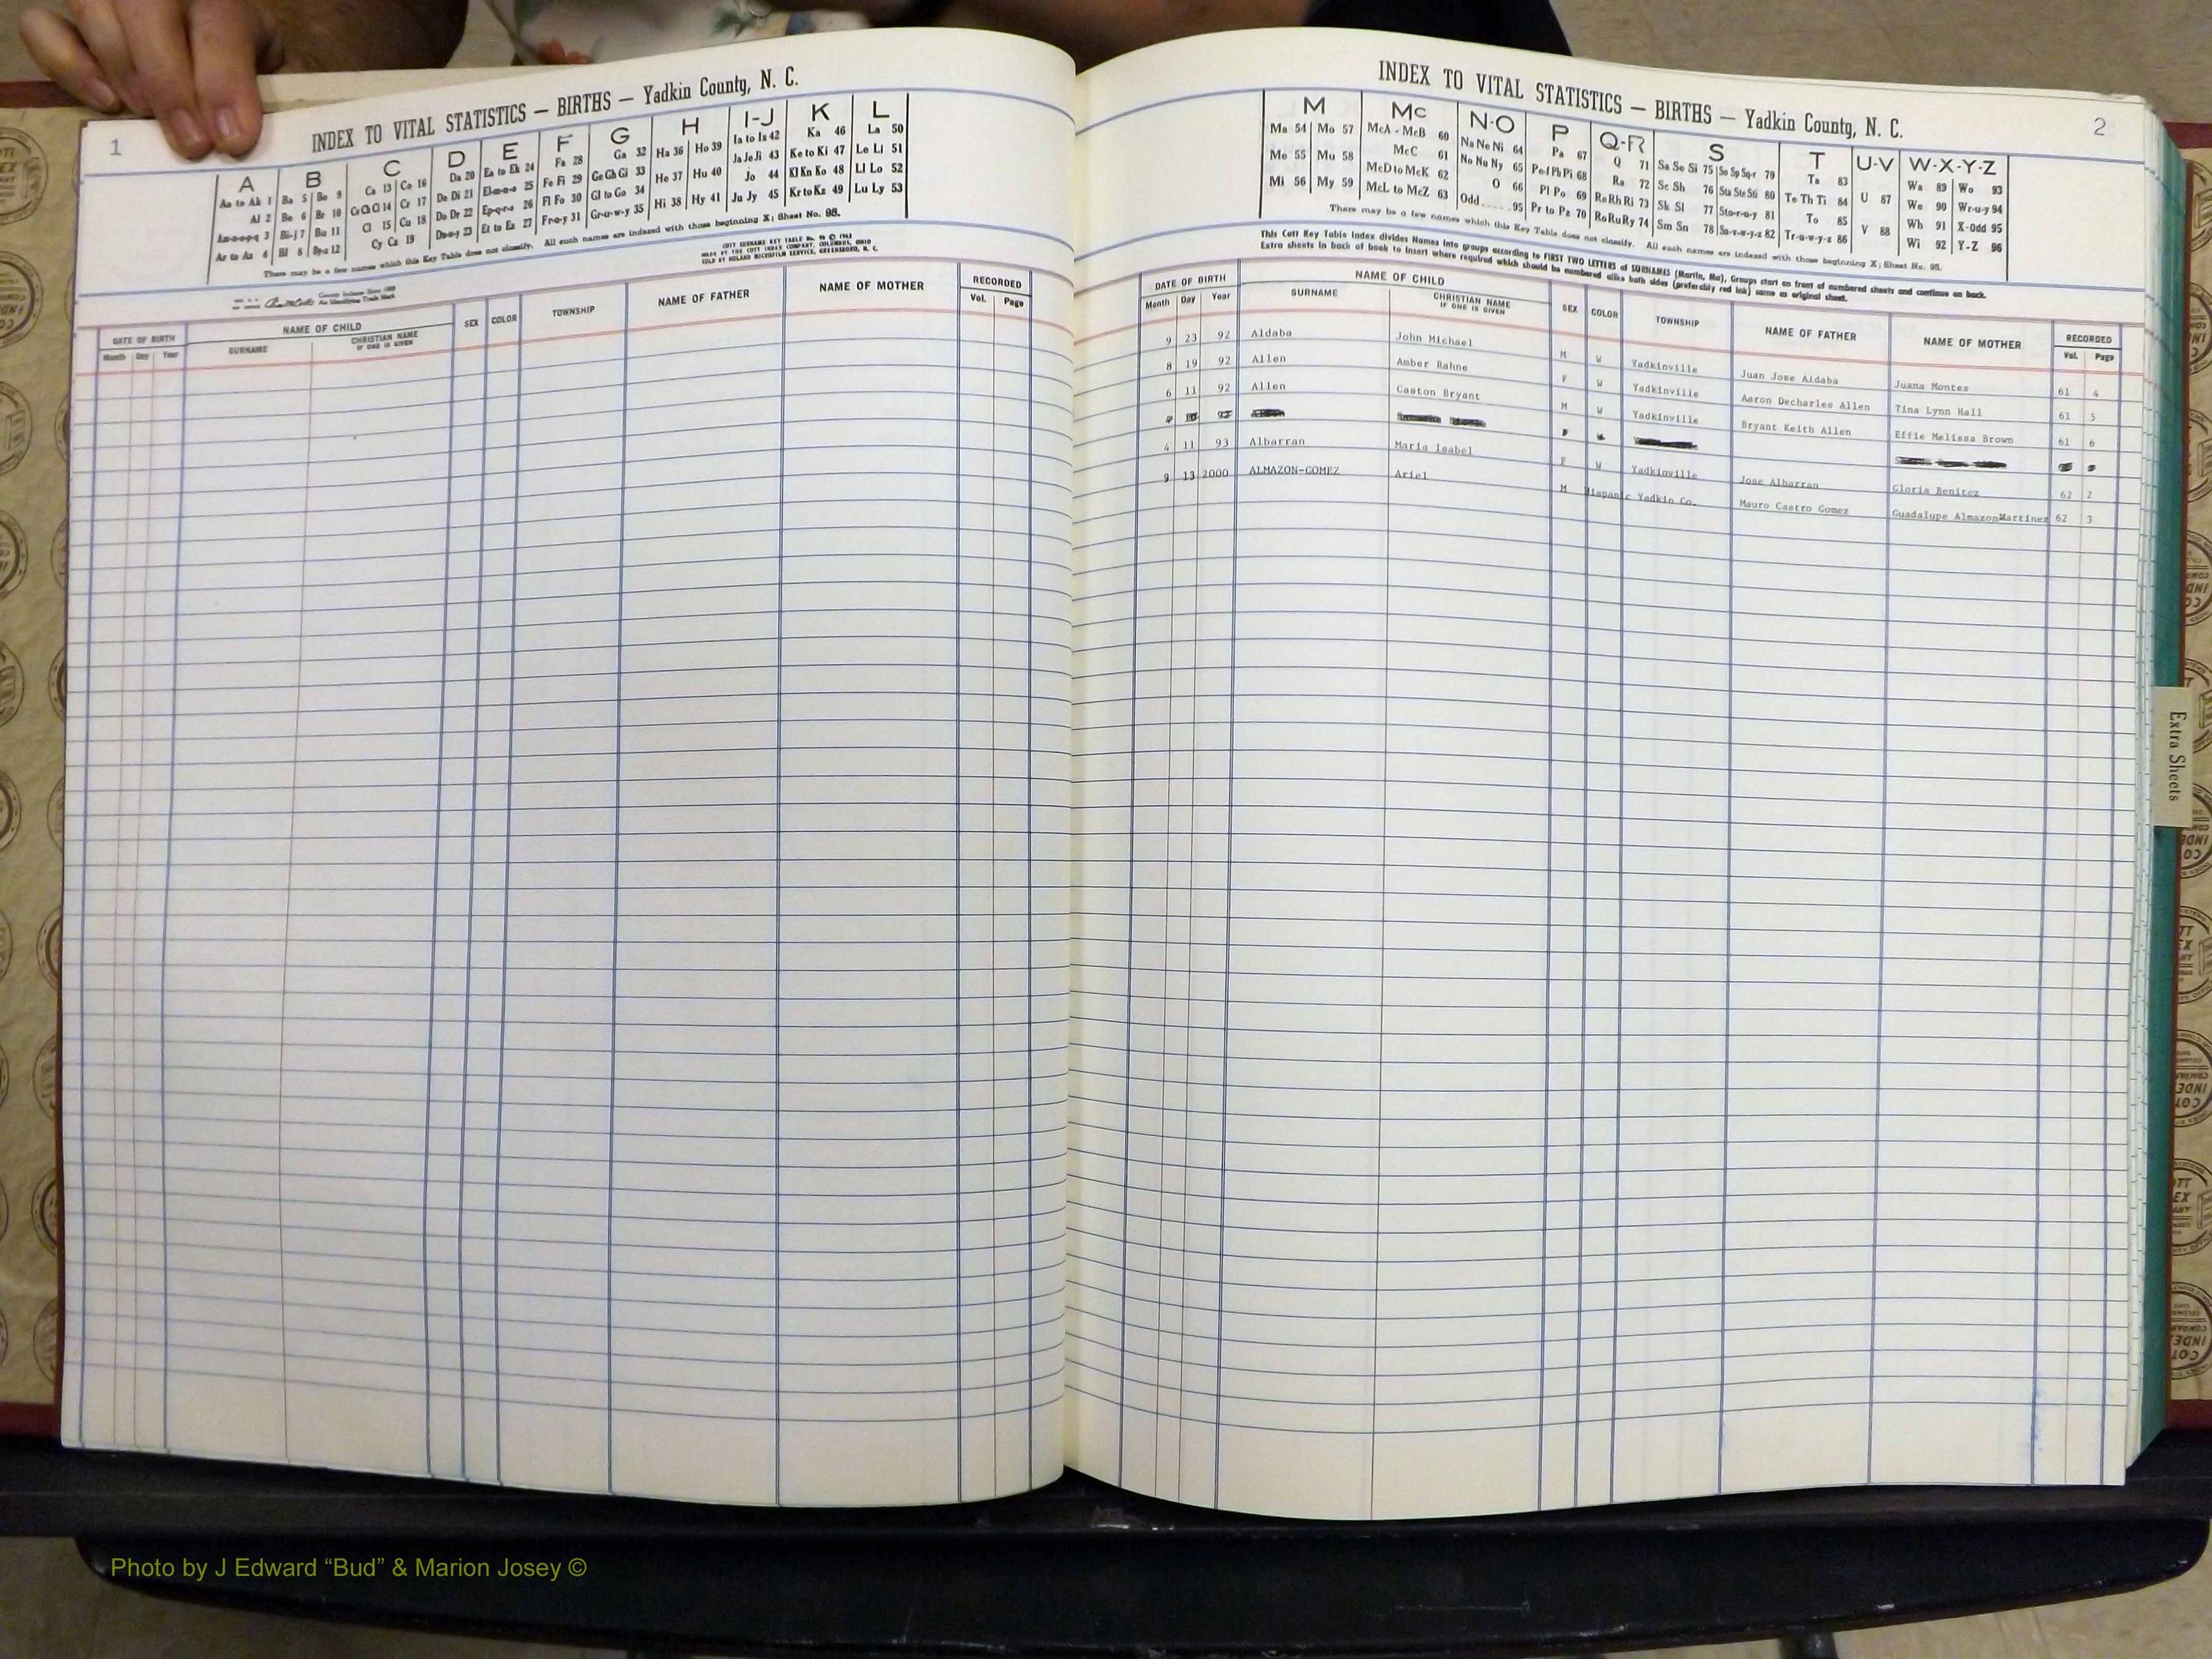 1
INDEX TO VITAL STATISTICS — BIRTHS — Yadkin County, N. C.
A B C D E F G H I-J K L
Aa to Ak 1 Ba 5 Bo 9 Ca 13 Co 16 Da 20 Ea to Ek 24 Fa 28 Ga 32 Ha 36 Ho 39 Ia to Iz 42 Ka 46 La 50
Al 2 Be 6 Br 10 Ce Ch Ci 14 Cr 17 De Di 21 El-m-n-o 25 Fe Fi 29 Ge Gh Gi 33 He 37 Hu 40 Ja Je Ji 43 Ke to Ki 47 Le Li 51
Am-n-o-p-q 3 Bi-j 7 Bu 11 Cl 15 Cu 18 Do Dr 22 Ep-q-r-s 26 Fl Fo 30 Gl to Go 34 Hi 38 Hy 41 Jo 44 Kl Kn Ko 48 Ll Lo 52
Ar to Az 4 Bl 8 By-a 12 Cy Cz 19 Du-w-y 23 Et to Ez 27 Fr-u-y 31 Gr-u-w-y 35 Ju Jy 45 Kr to Kz 49 Lu Ly 53
There may be a few names which this Key Table does not classify. All such names are indexed with those beginning X; Sheet No. 95.
COTT SURNAME KEY TABLE
MADE BY THE COTT INDEX COMPANY, COLUMBUS, OHIO
SOLD BY ROLAND MICROFILM SERVICE, GREENSBORO, N. C.
County Indexes Since 1888
An Identifying Trade Mark
DATE OF BIRTH NAME OF CHILD SEX COLOR TOWNSHIP NAME OF FATHER NAME OF MOTHER RECORDED
Month Day Year SURNAME CHRISTIAN NAME IF ONE IS GIVEN Vol. Page
2
INDEX TO VITAL STATISTICS — BIRTHS — Yadkin County, N. C.
M Mc N-O P Q-R S T U-V W-X-Y-Z
Ma 54 Mo 57 McA - McB 60 Na Ne Ni 64 Pa 67 Q 71 Sa Se Si 75 So Sp Sq-r 79 Ta 83 U 87 Wa 89 Wo 93
Me 55 Mu 58 McC 61 No Nu Ny 65 Pe-f Ph Pi 68 Ra 72 Sc Sh 76 Sta Ste Sti 80 Te Th Ti 84 V 88 We 90 Wr-u-y 94
Mi 56 My 59 McD to McK 62 O 66 Pl Po 69 Re Rh Ri 73 Sk Sl 77 Sto-r-u-y 81 To 85 Wh 91 X-Odd 95
McL to McZ 63 Odd 95 Pr to Pz 70 Ro Ru Ry 74 Sm Sn 78 Su-v-w-y-z 82 Tr-u-w-y-z 86 Wi 92 Y-Z 96
There may be a few names which this Key Table does not classify. All such names are indexed with those beginning X; Sheet No. 95.
This Cott Key Table Index divides Names into groups according to FIRST TWO LETTERS of SURNAMES (Martin, Ma), Groups start on front of numbered sheets and continue on back.
Extra sheets in back of book to insert where required which should be numbered alike both sides (preferably red ink) same as original sheet.
DATE OF BIRTH NAME OF CHILD SEX COLOR TOWNSHIP NAME OF FATHER NAME OF MOTHER RECORDED
Month Day Year SURNAME CHRISTIAN NAME IF ONE IS GIVEN Vol. Page
9 23 92 Aldaba John Michael M W Yadkinville Juan Jose Aldaba Juana Montes 61 4
8 19 92 Allen Amber Rahne F W Yadkinville Aaron Decharles Allen Tina Lynn Hall 61 5
6 11 92 Allen Caston Bryant M W Yadkinville Bryant Keith Allen Effie Melissa Brown 61 6
4 11 93 Albarran Maria Isabel F W Yadkinville Jose Albarran Gloria Benitez 62 2
9 13 2000 ALMAZON-GOMEZ Ariel M Hispanic Yadkin Co. Mauro Castro Gomez Guadalupe AlmazonMartinez 62 3
Extra Sheets
Photo by J Edward “Bud” & Marion Josey ©